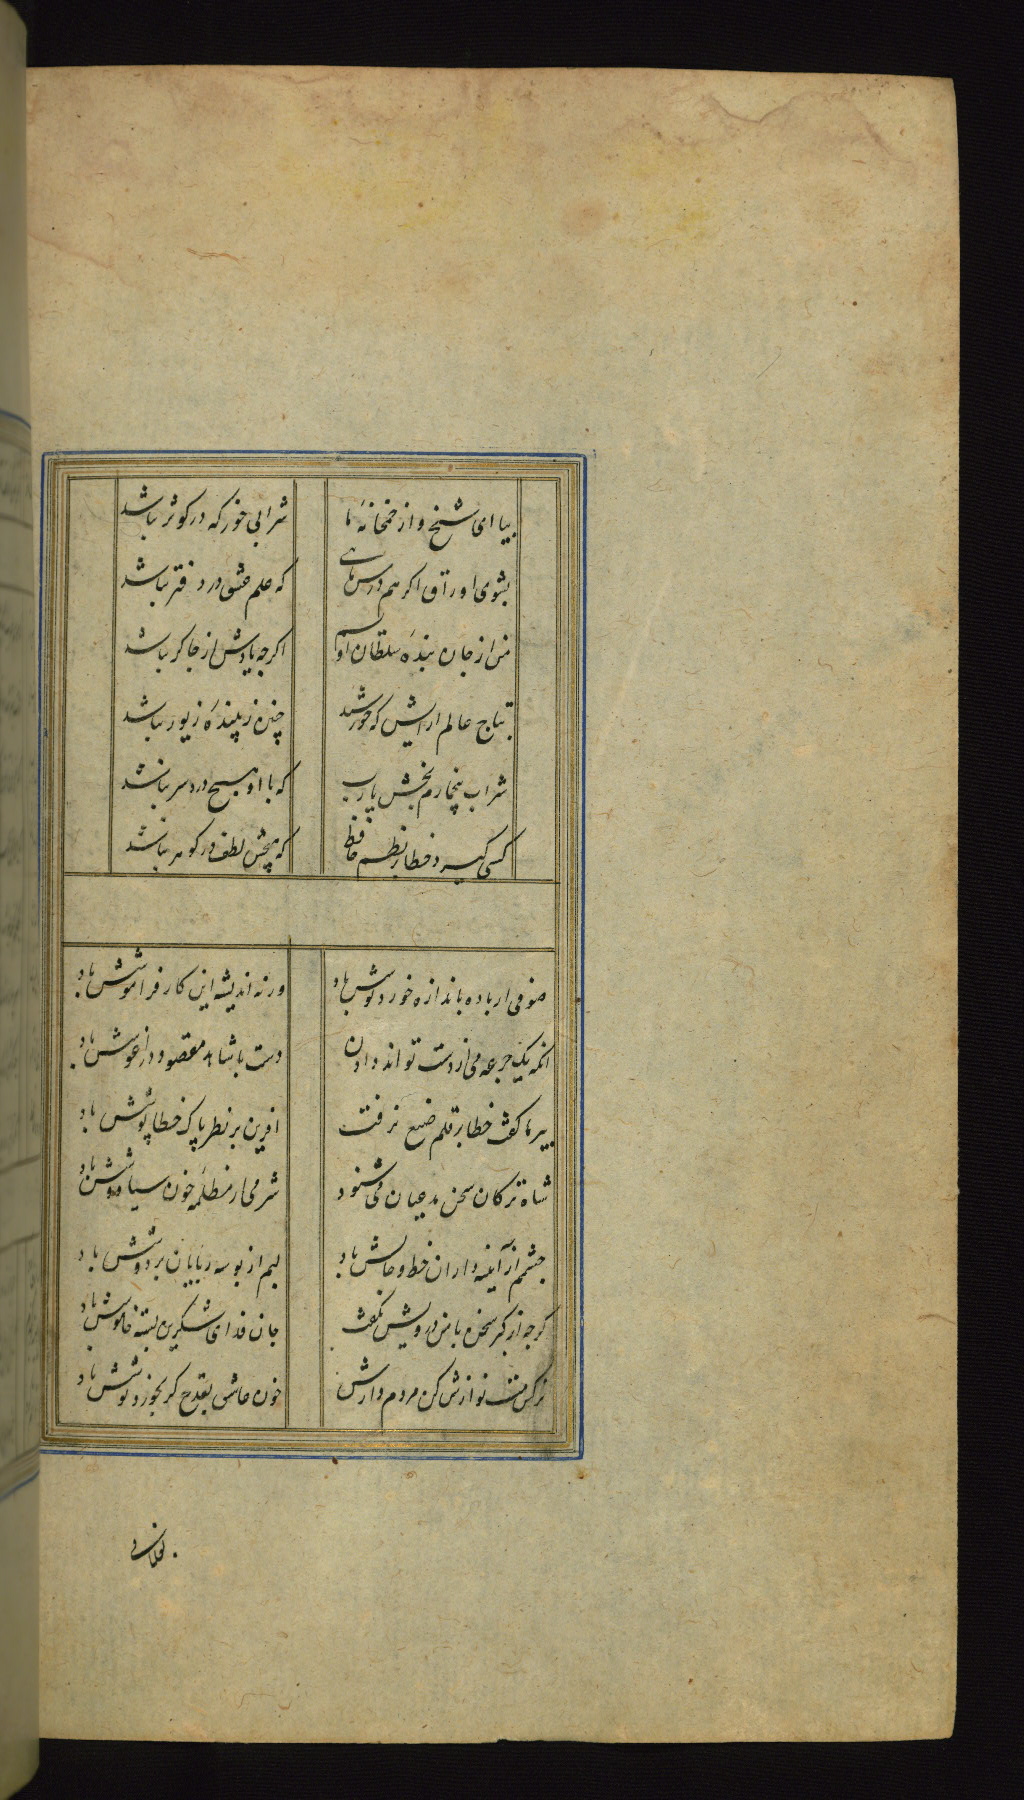 بیا ای شیخ و از خمخانهٔ ما
شرابی خور که در کوثر نباشد
بشوی اوراق اکر هم درس مائی
که علم عشق در دفتر نباشد
من از جان بندهٔ سلطان اویسم
اکرچه یادش از چاکر نباشد
بتاج عالم ارایش که خورشید
چنین زیبندهٔ زیور نباشد
شراب بیخمارم بخش یارب
که با او هیچ درد سر نباشد
کسی کیرد خطا بر نظم حافظ
که هیچش لطف در کوهر نباشد
صوفی ار باده باندازه خورد نوشش باد
ورنه اندیشه این کار فراموشش باد
انکه یک جرعه می از دست تواند دادن
دست با شاهد مقصود در اغوشش باد
پیر ما کفت خطا بر قلم صنع نرفت
افرین بر نظر پاک خطا پوشش باد
شاه ترکان سخن مدعیان می شنود
شرمی از مظلمه خون سیاووشش باد
چشمم از آینه داران خط و خالش باد
لبم از بوسه ربایان بر دوشش باد
کرچه از کبر سخن با من درویش نکفت
جان فدای شکرین پسته خاموشش باد
نرکس مست نوازش کن مردم دارش
خون عاشق بقدح کر بخورد نوشش باد
بغلامی